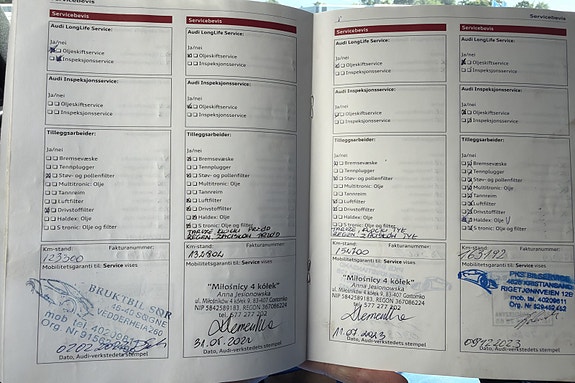 Servicebevis
Servicebevis
Audi LongLife Service:
Ja/nei
Oljeskiftservice
Inspeksjonsservice
Audi Inspeksjonsservice:
Ja/nei
Oljeskiftservice
Inspeksjonsservice
Tilleggsarbeider:
Ja/nei
Bremsevæske
Tennplugger
Støv- og pollenfilter
Multitronic: Olje
Tannreim
Luftfilter
Drivstoffilter
Haldex: Olje
S tronic: Olje og filter
Km-stand: Fakturanummer:
123300
Mobilitetsgaranti til: Service vises
BRUKTBIL SØR
4640 SØGNE
mob tel
Org. Nr
Dato, Audi-verkstedets stempel
Servicebevis
Audi LongLife Service:
Ja/nei
Oljeskiftservice
Inspeksjonsservice
Audi Inspeksjonsservice:
Ja/nei
Oljeskiftservice
Inspeksjonsservice
Tilleggsarbeider:
Ja/nei
Bremsevæske
Tennplugger
Støv- og pollenfilter
Multitronic: Olje
Tannreim
Luftfilter
Drivstoffilter
Haldex: Olje
S tronic: Olje og filter
Km-stand: Fakturanummer:
Mobilitetsgaranti til: Service vises
"Miłośnicy 4 kółek"
Anna Jesionowska
NIP 5842589183, REGON 367086224
tel. 577 277 202
Dato, Audi-verkstedets stempel
Servicebevis
Servicebevis
Audi LongLife Service:
Ja/nei
Oljeskiftservice
Inspeksjonsservice
Audi Inspeksjonsservice:
Ja/nei
Oljeskiftservice
Inspeksjonsservice
Tilleggsarbeider:
Ja/nei
Bremsevæske
Tennplugger
Støv- og pollenfilter
Multitronic: Olje
Tannreim
Luftfilter
Drivstoffilter
Haldex: Olje
S tronic: Olje og filter
Km-stand: Fakturanummer:
Mobilitetsgaranti til: Service vises
"Miłośnicy 4 kółek"
Anna Jesionowska
NIP 5842589183, REGON 367086224
tel. 577 277 202
11.07.2023
Dato, Audi-verkstedets stempel
Servicebevis
Audi LongLife Service:
Ja/nei
Oljeskiftservice
Inspeksjonsservice
Audi Inspeksjonsservice:
Ja/nei
Oljeskiftservice
Inspeksjonsservice
Tilleggsarbeider:
Ja/nei
Bremsevæske
Tennplugger
Støv- og pollenfilter
Multitronic: Olje
Tannreim
Luftfilter
Drivstoffilter
Haldex: Olje
S tronic: Olje og filter
Km-stand: Fakturanummer:
163192
Mobilitetsgaranti til: Service vises
KRISTIANSAND
09122023
Dato, Audi-verkstedets stempel